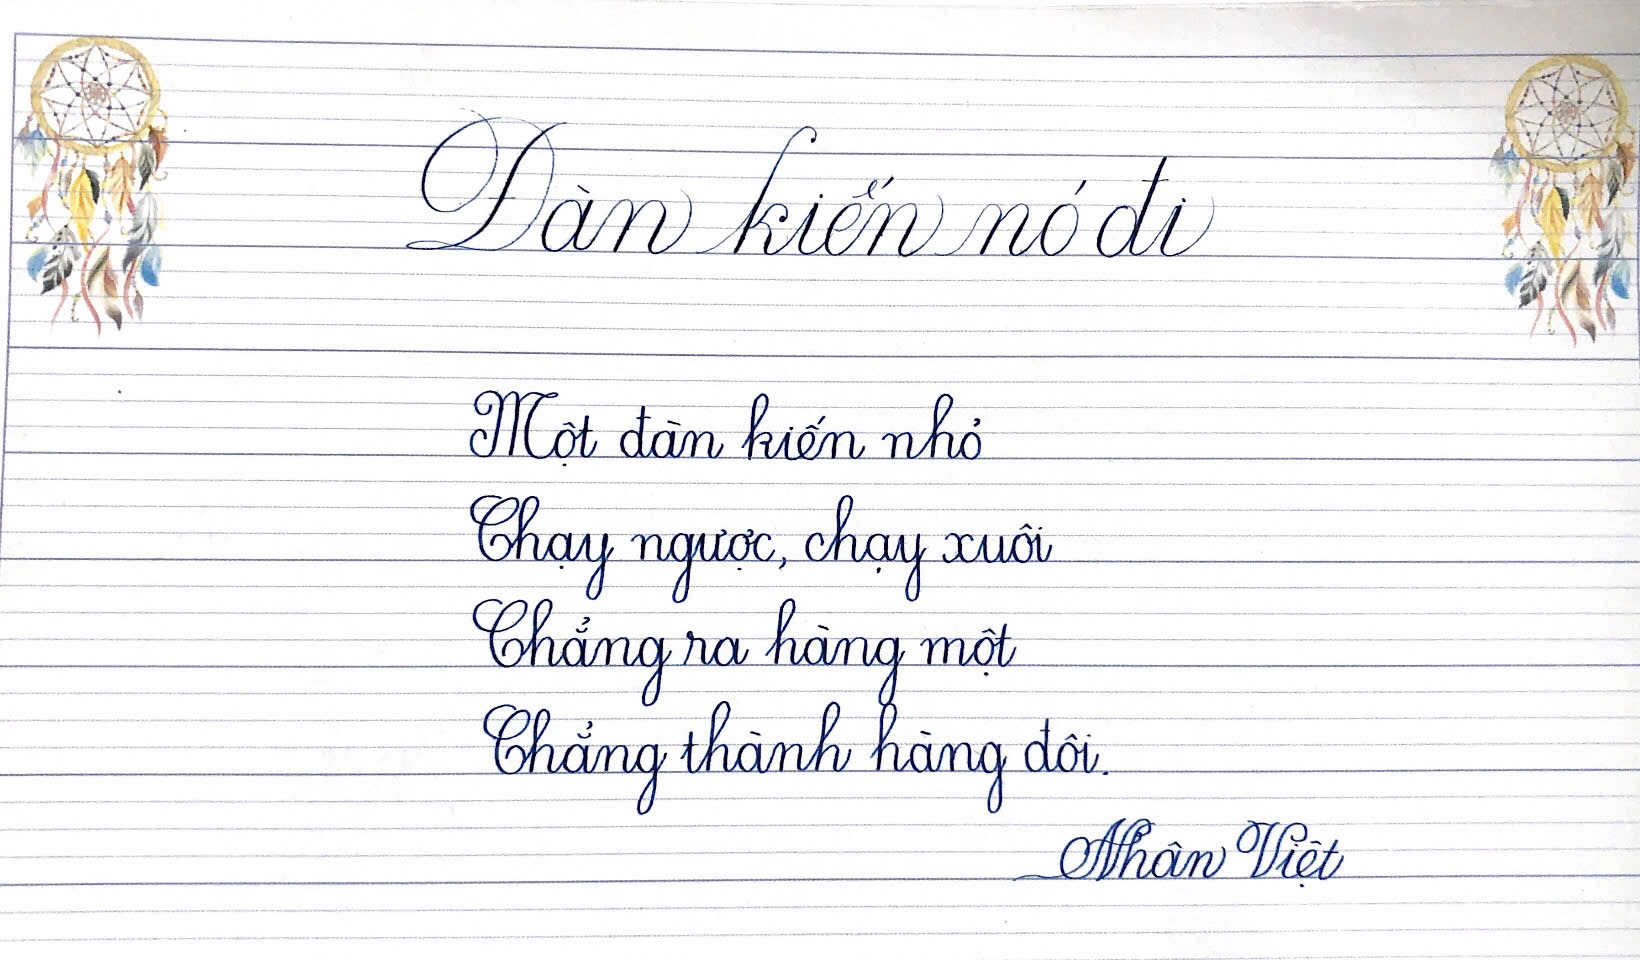 Đàn kiến nó đi
Một đàn kiến nhỏ
Chạy ngược, chạy xuôi
Chẳng ra hàng một
Chẳng thành hàng đôi.
Nhân Việt